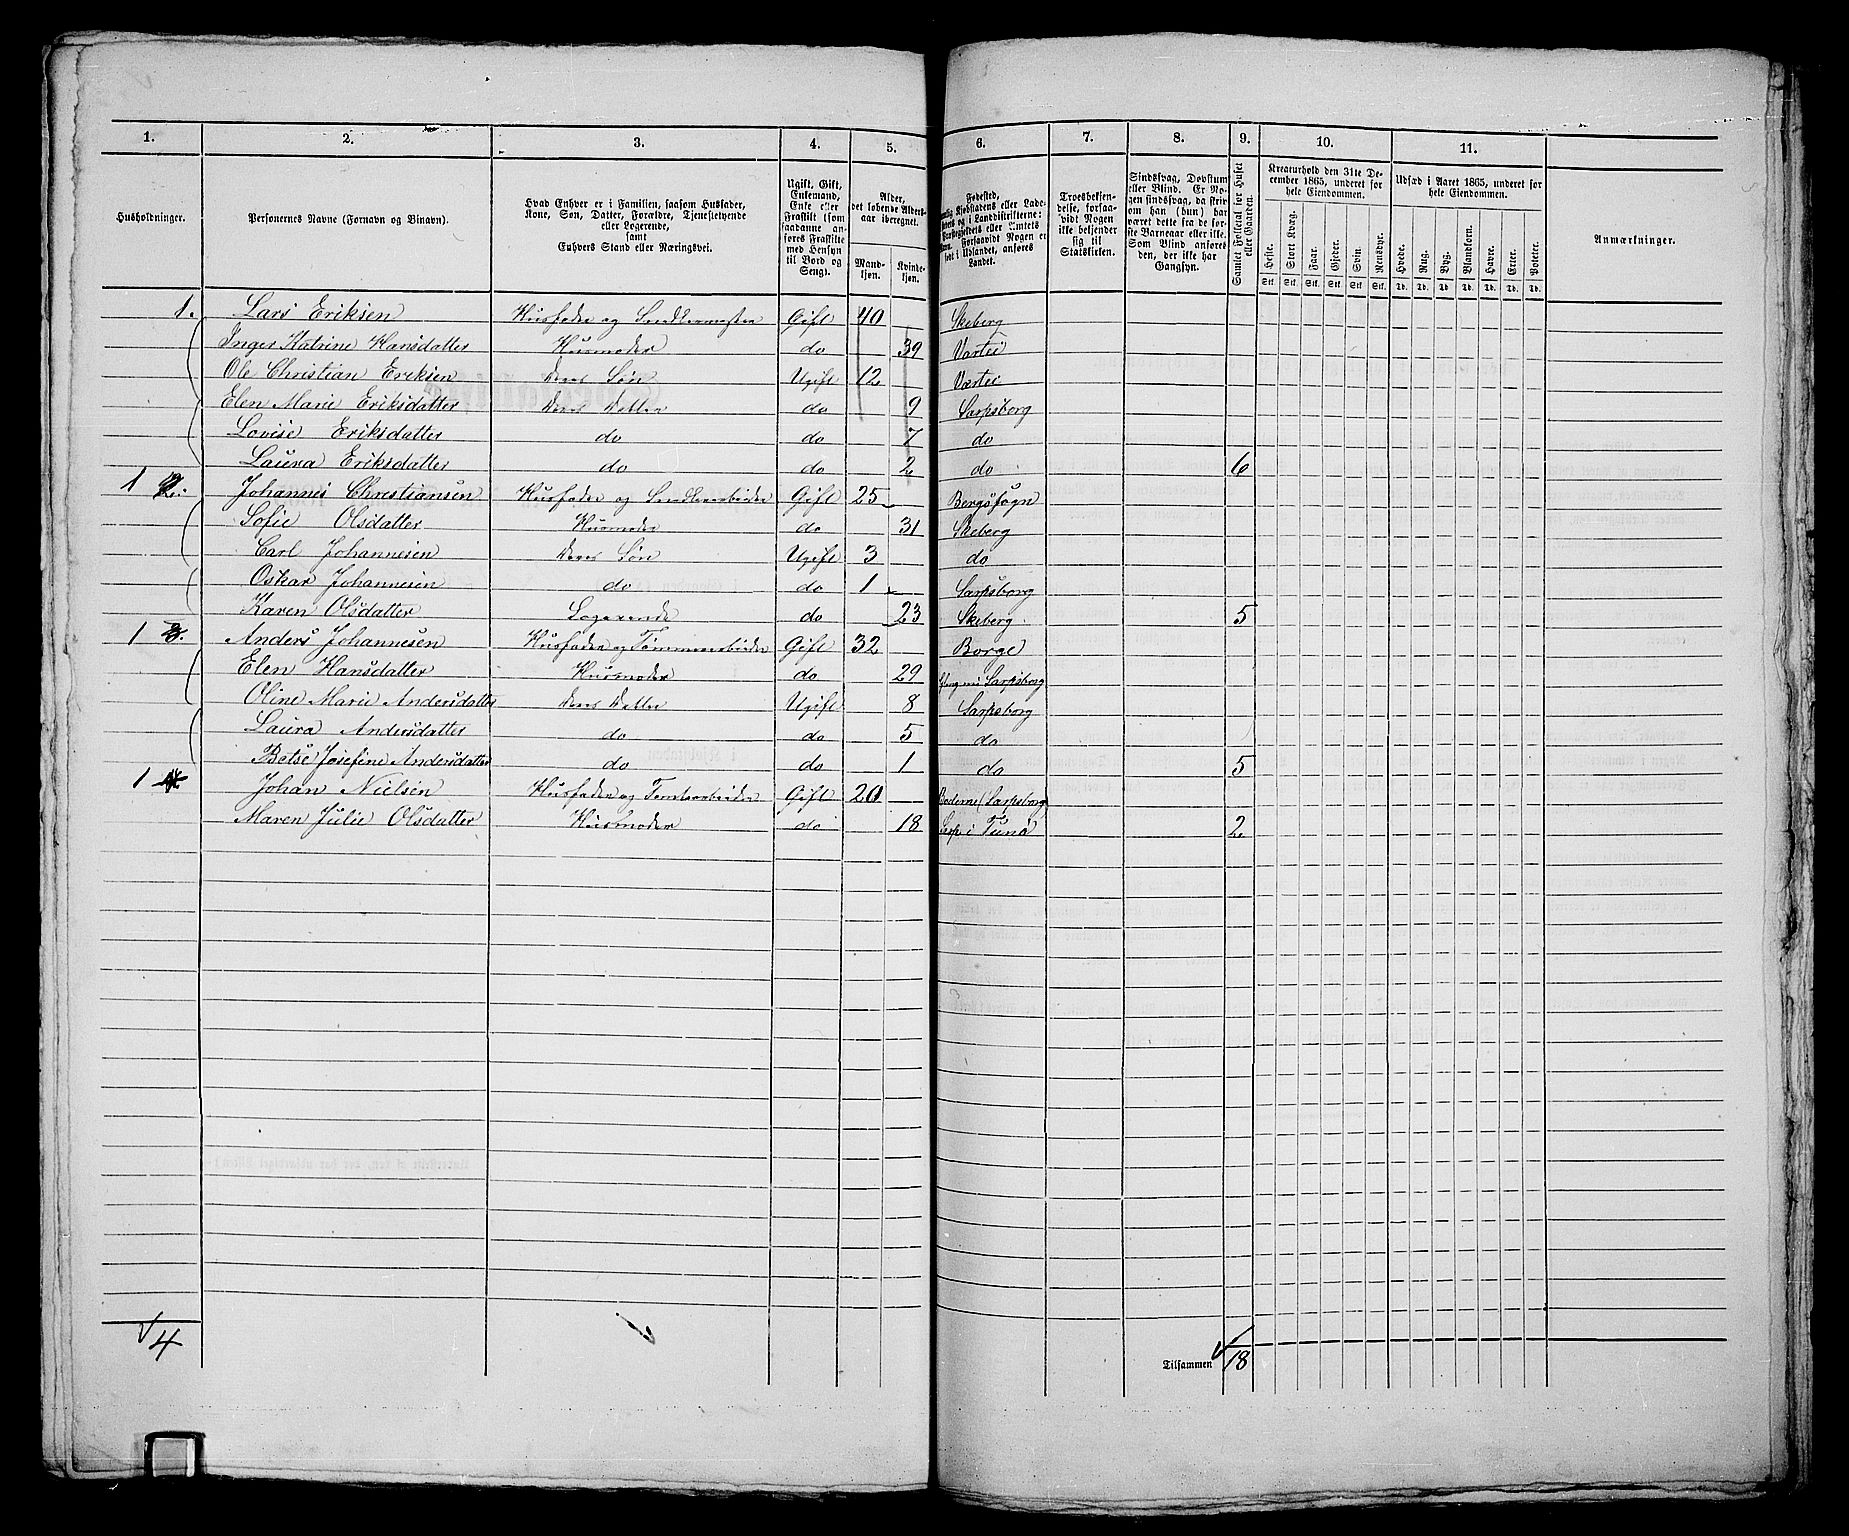 1. 2. 3. 4. 5. 6. 7. 8. 9. 10. 11.
Husholdninger.
Personernes Navne (Fornavn og Binavn).
Hvad Enhver er i Familien, saasom Husfader,
Kone, Søn, Datter, Forældre, Tjenestetyende
eller Logerende,
samt
Enhvers Stand eller Næringsvei.
Ugift, Gift,
Enkemand,
Enke eller
Fraskilt (som
saadanne an-
føres Fraskilte
med Hensyn
til Bord og
Seng).
Alder,
det løbende Alders-
aar iberegnet.
Mand-
kjøn.
Kvinde-
kjøn.
Fødested,
Kjøbstadens eller Lade-
og i Landdistrifterne:
eller Amtets
Forsaavidt Nogen er
født i Udlandet, anføres
Landet.
Troesbekjen-
delse, forsaa-
vidt Nogen
ikke bekjender
sig til
Statskirken.
Sindssvag, Døvstum
eller Blind. Er No-
gen sindssvag, da skri-
hun (hun) har
været dette fra de før-
ste Barneaar eller ikke.
Som Blind anføres
den, der ikke har
Gangsyn.
Samlet Folketal for Huset
eller Gaarden.
Kreaturhold den 31te De-
cember 1865, underet for
hele Eiendommen.
Heste. Stort Kvæg. Faar. Gjeder. Svin. Rensdyr.
Stk. Stk. Stk. Stk. Stk. Stk.
Udsæd i Aaret 1865, underet for
hele Eiendommen.
Hvede. Rug. Byg. Blandkorn. Havre. Erter. Poteter.
Td. Td. Td. Td. Td. Td. Td.
Anmærkninger.
1. Lars Eriksen Husfader og Snedkermester Gift 40 Skeberg
Inger Katrine Hansdatter Husmoder do 39 Varte
Ole Christian Eriksen deres Søn Ugift 12 Varte
Elen Marie Eriksdatter deres Datter do 9 Sarpsborg
Lovise Eriksdatter do do 7 do
Laura Eriksdatter do do 2 do 6
1 2. Johannes Christiansen Husfader og Snedkerarbeider Gift 25 Bergsogn
Sofie Olsdatter Husmoder do 31 Skeberg
Carl Johannesen deres Søn Ugift 3 do
Oskar Johannesen do do 1 Sarpsborg
Karen Olsdatter Logerende do 23 Skeberg 5
1 3. Anders Johannesen Husfader og Tømmerarbeider Gift 32 Borge
Elen Hansdatter Husmoder do 29 Sarpsborg
Oline Marie Andersdatter deres Datter Ugift 8 Sarpsborg
Laura Andersdatter do do 5 do
Betse Josefine Andersdatter do do 1 do 5
1 4 Johan Nielsen Husfader og Tomtearbeider Gift 20 Sarpsborg
Maren Julie Olsdatter Husmoder do 18 Sarp i Tune 2
4
Tilsammen 18